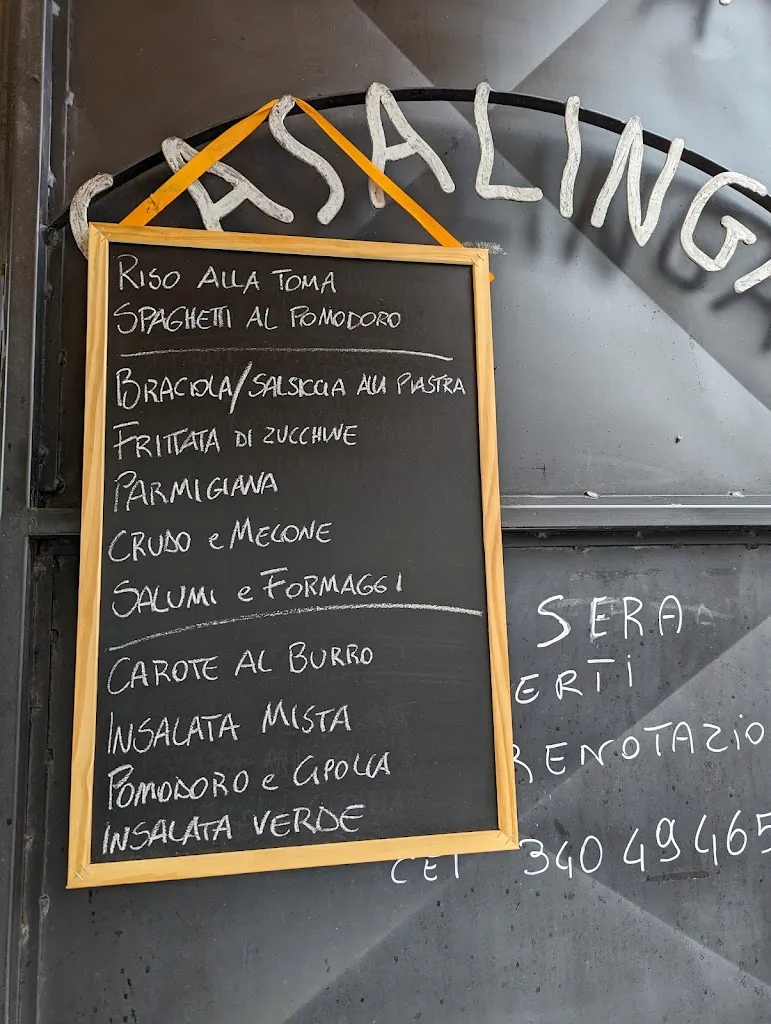 CASALINGA
RISO ALLA TOMA
SPAGHETTI AL POMODORO
BRACIOLA/SALSICCIA ALLA PIASTRA
FRITTATA DI ZUCCHINE
PARMIGIANA
CRUDO e MELONE
SALUMI e FORMAGGI
CAROTE AL BURRO
INSALATA MISTA
POMODORO e CIPOLLA
INSALATA VERDE
SERA
ERTI
RENOTAZIO
CEL 340 49465